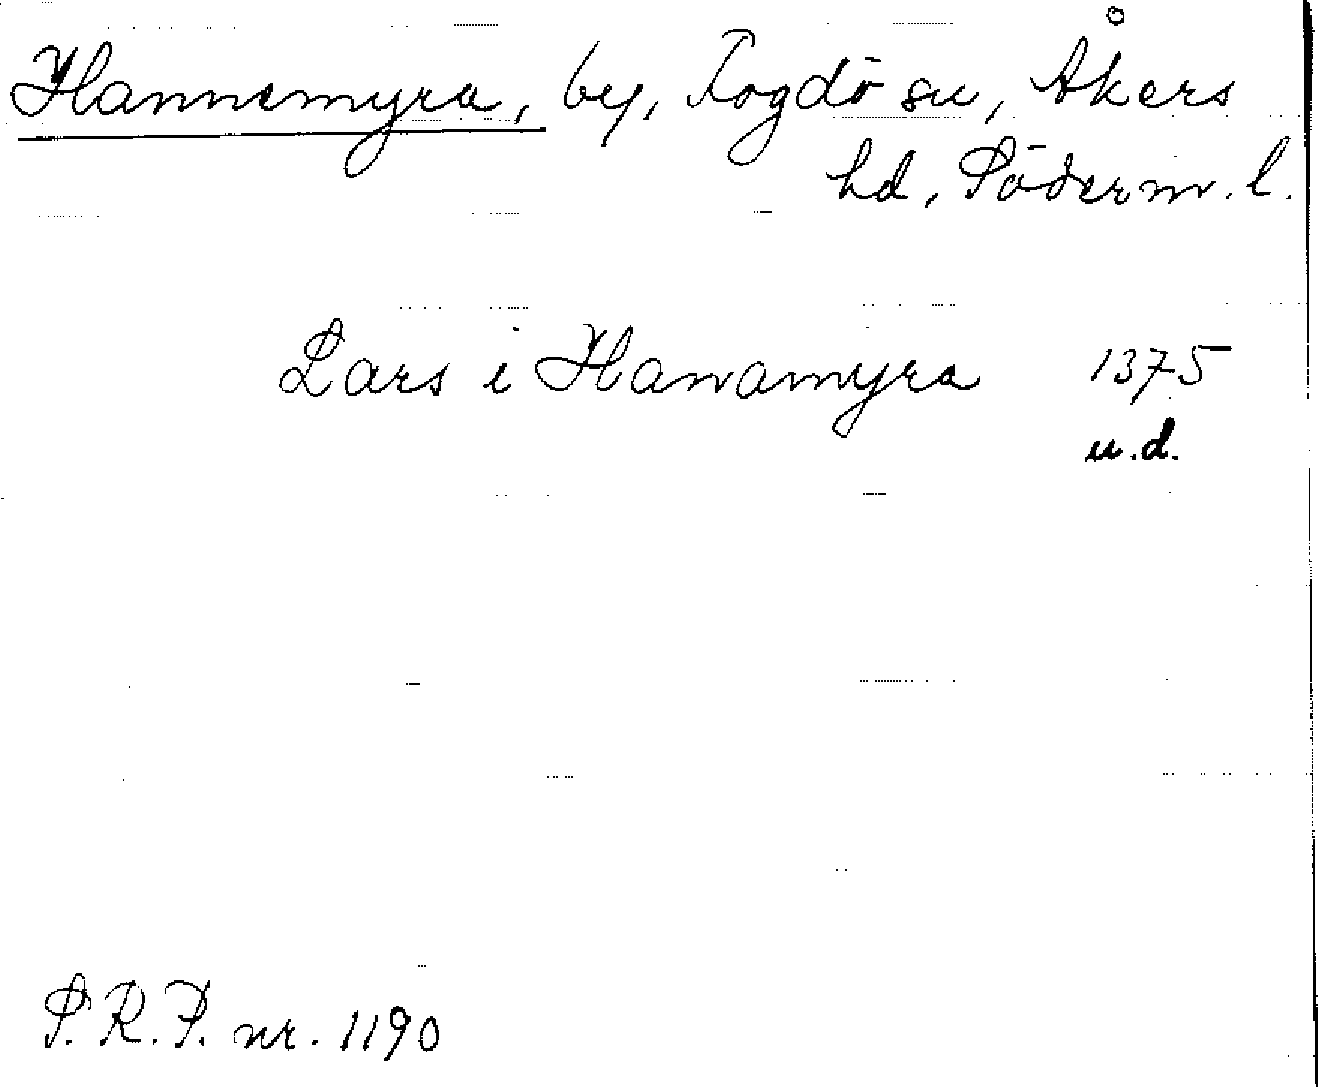 Hannemyra, by, Fogdö sn, Åkers
hd, Söderm. l.
Lars i Hanamyra 1375
u.d.
S.R.P. nr. 1190